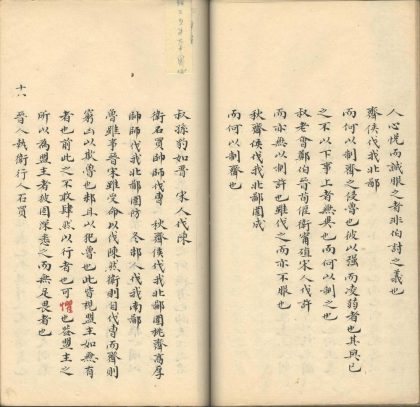 人心悅而誠服之者非伯討之義也
齊侯伐我北鄙
而何以制齊之侵魯也彼以強而凌弱者也其與已
之不以下事上者無異也而何以制之也
叔老會鄭伯晉荀偃衛甯殖宋人伐許
而亦無以制許也雖伐之而亦不服也
秋齊侯伐我北鄙圍成
而何以制齊也
叔孫豹如晉 宋人伐陳
衛石買帥師伐曹 秋齊侯伐我北鄙圍桃齊高厚
帥師伐我北鄙圍防 冬邾人伐我南鄙
魯雖事晉宋雖受命以伐陳然衛則自伐曹而齊則
窮凶以欺魯也邾且以犯魯也此皆視盟主如無有
者也前此之不敢肆然以行者也可懼也蓋盟主之
所以為盟主者彼固深悉之而無足畏者也
晉人執衛行人石買
十六